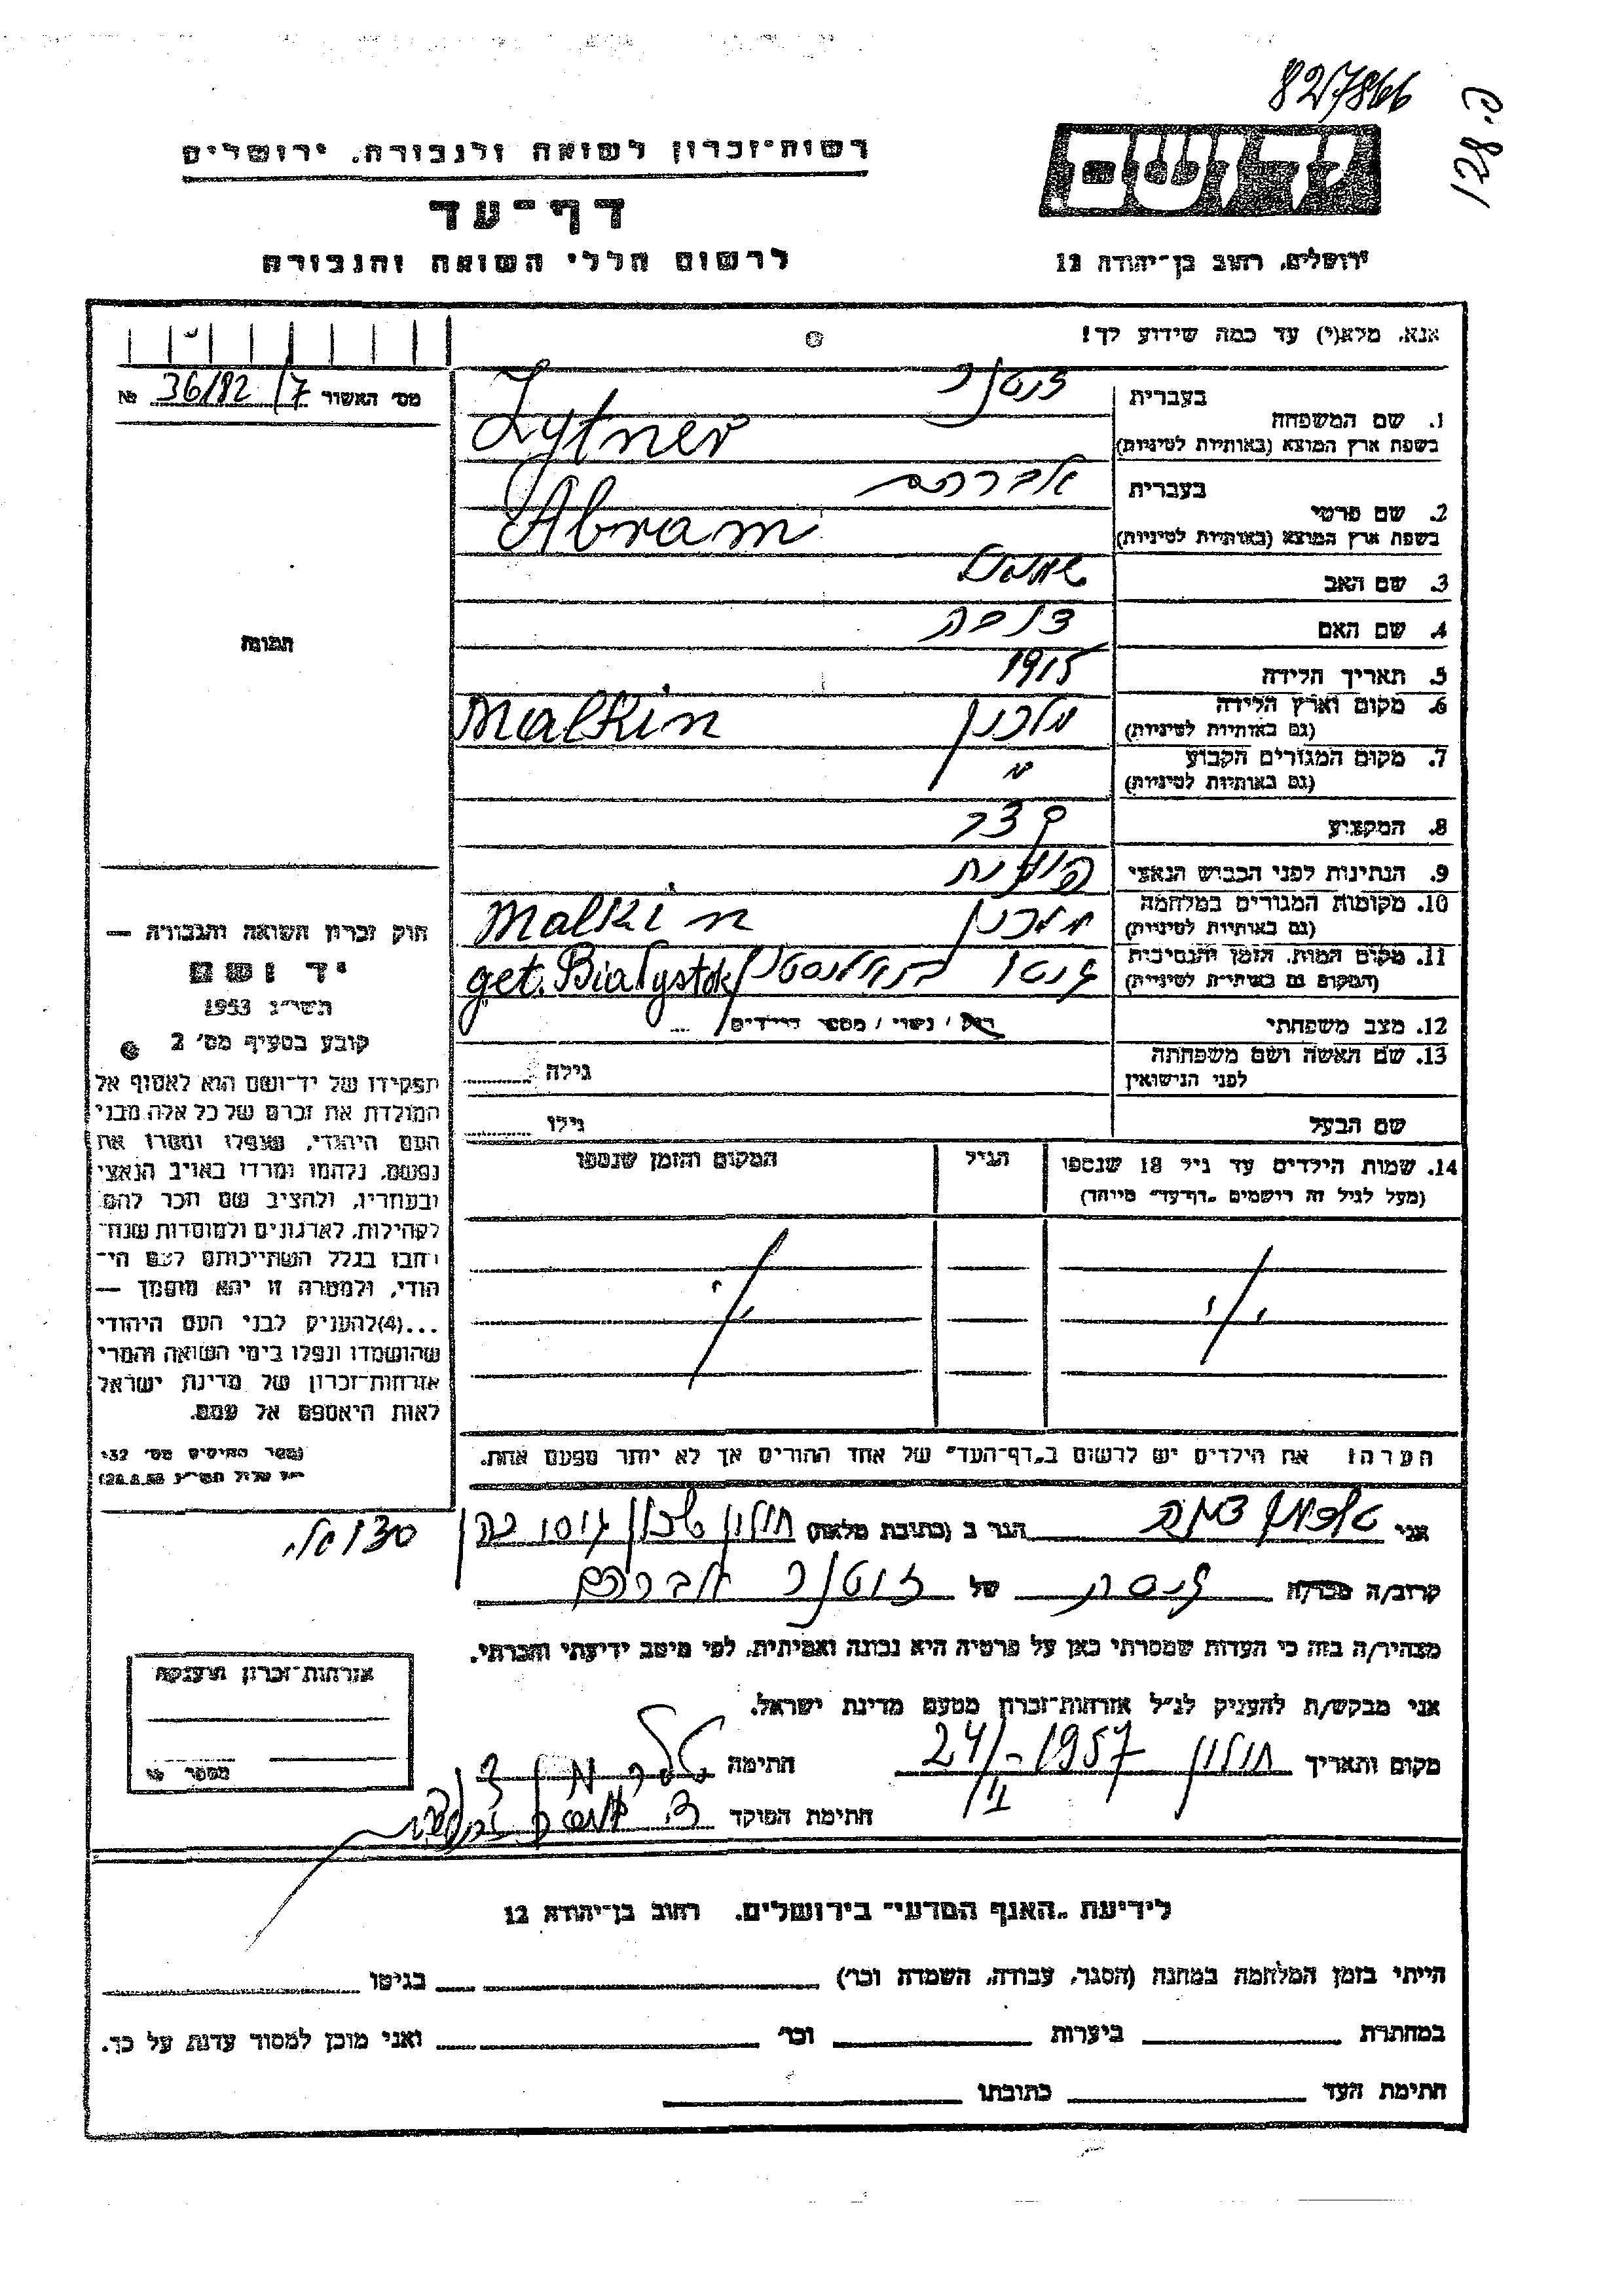 827866
פ. 128
רשות-זכרון לשואה ולגבורה, ירושלים
דף-עד
לרשום חללי השואה והגבורה
יד ושם
ירושלים, רחוב בן-יהודה 12
אנא, מלא(י) עד כמה שידוע לך!
מס' האשור 7/ 36/82 №
1. שם המשפחה
בעברית זיטנר
בשפת ארץ המוצא (באותיות לטיניות) Zytner
2. שם פרטי
בעברית אברהם
בשפת ארץ המוצא (באותיות לטיניות) Abram
3. שם האב
4. שם האם
5. תאריך הלידה 1915
6. מקום וארץ הלידה (גם באותיות לטיניות) מלכין Malkin
7. מקום המגורים הקבוע (גם באותיות לטיניות) "
8. המקצוע קצב
9. הנתינות לפני הכבוש הנאצי פולנית
10. מקומות המגורים במלחמה (גם באותיות לטיניות) מלכין Malkin
11. מקום המות, הזמן והנסיבות (המקום גם באותיות לטיניות) גיטו ביאליסטוק get. Białystok
12. מצב משפחתי רוק / נשוי / מספר הילדים ...
13. שם האשה ושם משפחתה לפני הנישואין גילה
שם הבעל גילו
14. שמות הילדים עד גיל 18 שנספו (מעל לגיל זה רושמים "דף-עד" מיוחד)
הגיל
המקום והזמן שנספו
תמונה
חוק זכרון השואה והגבורה —
יד ושם
תשי"ג 1953
קובע בסעיף מס' 2
תפקידו של יד-ושם הוא לאסוף אל
המולדת את זכרם של כל אלה מבני
העם היהודי, שנפלו ומסרו את
נפשם, נלחמו ומרדו באויב הנאצי
ובעוזריו, ולהציב שם וזכר להם
לקהילות, לארגונים ולמוסדות שנח-
רבו בגלל השתייכותם לעם הי-
הודי, ולמטרה זו יהא מוסמך —
...(4) להעניק לבני העם היהודי
שהושמדו ונפלו בימי השואה והמרי
אזרחות-זכרון של מדינת ישראל
לאות היאספם אל עמם.
הערה: את הילדים יש לרשום ב"דף-העד" של אחד ההורים אך לא יותר מפעם אחת.
אני
הגר ב (כתובת מלאה) חולון שכון
קרוב/ה מכר/ה גיסה של זיטנר אברהם
מצהיר/ה בזה כי העדות שמסרתי כאן על פרטיה היא נכונה ואמיתית, לפי מיטב ידיעתי והכרתי.
אני מבקש/ת להעניק לנ"ל אזרחות-זכרון מטעם מדינת ישראל.
מקום ותאריך חולון 24/II-1957 חתימה
חתימת הפוקד
אזרחות-זכרון הוענקה
מספר
לידיעת "האגף המדעי" בירושלים, רחוב בן-יהודה 12
הייתי בזמן המלחמה במחנה (הסגר, עבודה, השמדה וכו') בגיטו
במחתרת ביערות וכו' ואני מוכן למסור עדות על כך.
חתימת העד כתובתו